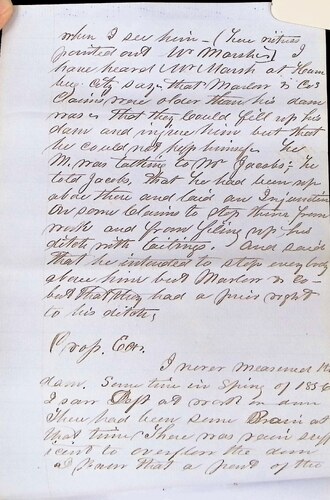 when I see him — (here witness
pointed out Mr Marsh) I
have heard Mr Marsh at Hum
bug City say that Marlow & Co's
Claims were older than his dam
was & that they could fill up his
dam and injure him but that
he could not help himself. He
M. was talking to Mr Jacobs; he
told Jacobs that he had been up
above there and laid an Injunction
on some Claims to stop them from
work and from filing up his
ditch with tailings. And said
that he intended to stop everybody
above him but Marlow & Co
but that they had a prior right
to his ditch;
Cross. Ex.
I never measured the
dam. Some time in Spring of 185
I saw at work on dam
There had been some Rain at
that time. There was rain suff
icient to overflow the dam
I know that a part of the